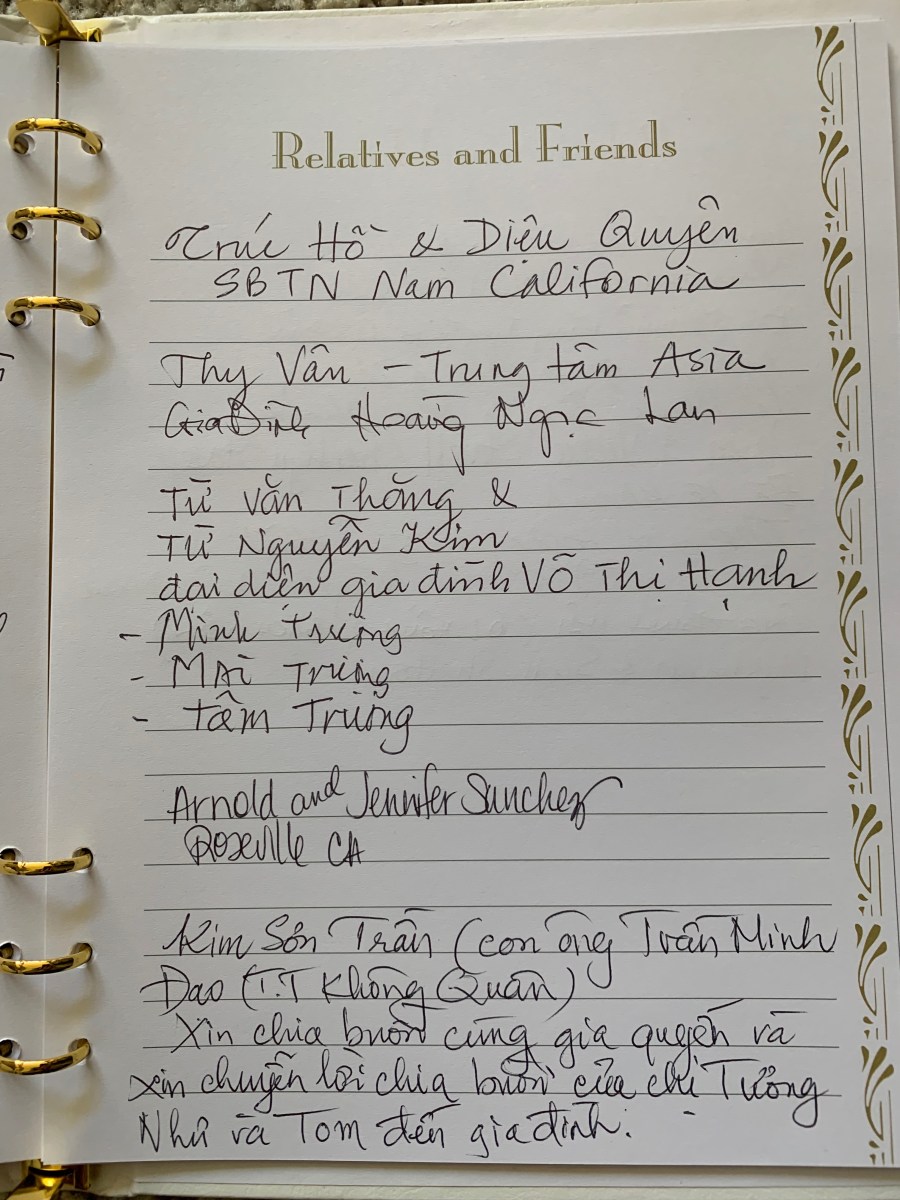 Relatives and Friends
Trúc Hồ & Diệu Quyên
SBTN Nam California
Thy Vân - Trung tâm Asia
Gia Đình Hoàng Ngọc Lan
Từ Văn Thắng &
Từ Nguyễn Kim
đại diện gia đình Võ Thị Hạnh
- Minh Trường
- Mai Trường
- Tâm Trường
Arnold and Jennifer Sanchez
Roseville CA
Kim Sơn Trần (con ông Trần Minh
Đạo (T.T Không Quân)
Xin chia buồn cùng gia quyến và
xin chuyển lời chia buồn của chị Tường
Như và Tom đến gia đình.